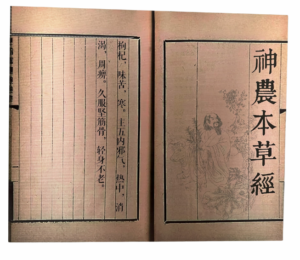 神農本草經
枸杞，味苦，寒。主五内邪氣，热中，消
渴，周痹。久服堅筋骨，轻身不老。